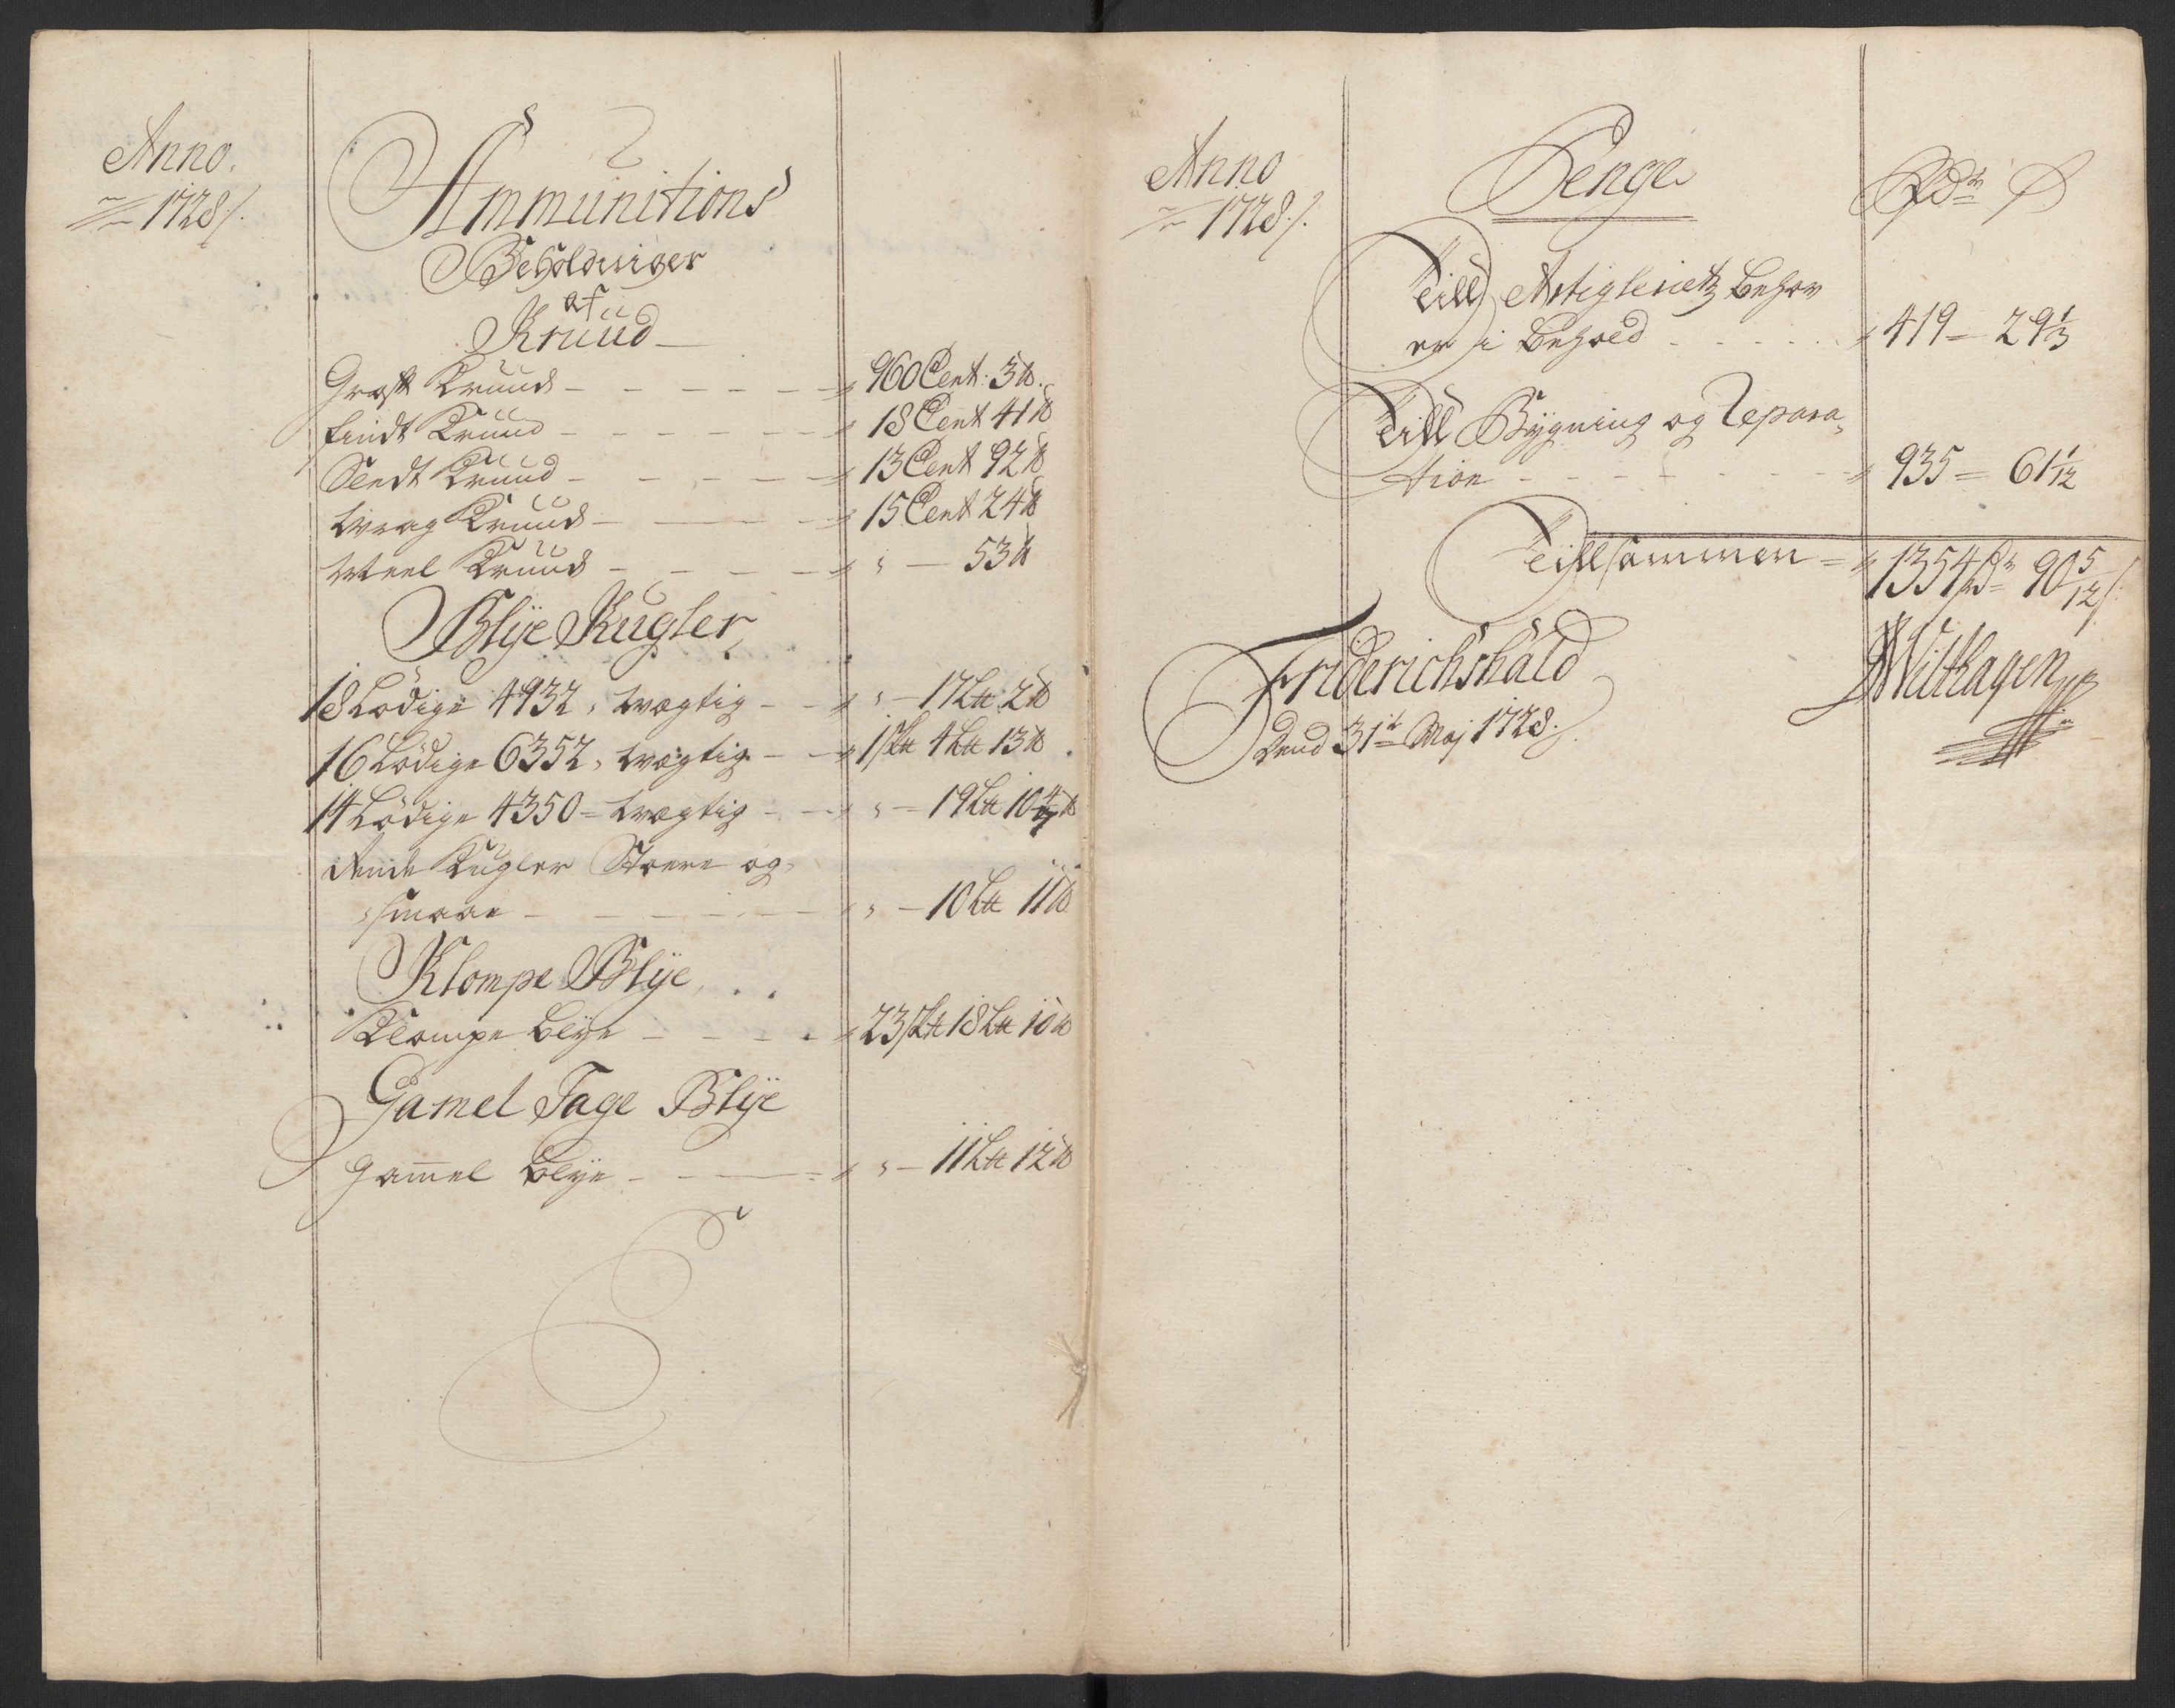 Anno.
1728/.
Ammunitions
Beholdninger
af
Kruud
Groft Kruud - - - - - 960 Cent. 3 ℔.
findt Kruud - - - - - 18 Cent 41 ℔
Sledt Kruud - - - - - 13 Cent 92 ℔
wrag Kruud - - - - 15 Cent 24 ℔
Meel Kruud - - - - " - 53 ℔
Blÿe Kugler
18 Lödige 4932, wægtig - - " - 17 L℔ 2 ℔
16 Lödige 6352, wægtig - - 1 s℔ 4 L℔ 13 ℔.
14 Lödige 4350 = wægtig - - " - 19 L℔ 10 4/7 ℔
Kugler Stoere og
smaae - - - - - " - 10 L℔ 11 ℔
Klompe Blÿe
Klompe Blÿe - - - - 23 s℔ 18 L℔ 10 ℔
Gamel Tage Blÿe
Gam̄el Blÿe - - - " - 11 L℔ 12 ℔
Anno
1728/.
Penge
Rdr ß
Till Artigleriets behov
er i behold - - - - - 419 - 29 1/3
Till Bÿgning og Repara-
tion - - - - - - 935 = 61 1/12
Tillsammen = 1354 Rdr 90 5/12 /.
Friderichshald
Dend 31te Maj 1728.
Wilthagen